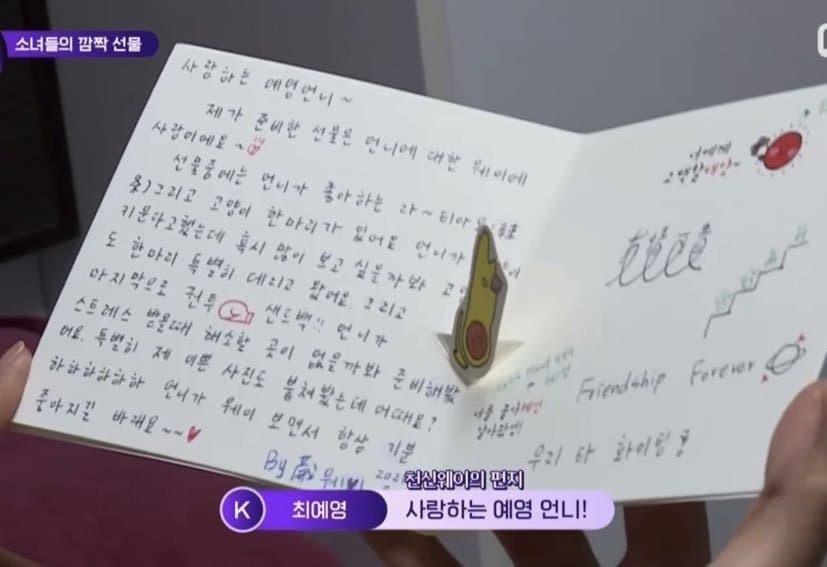 소녀들의 깜짝 선물
사랑하는 예영언니~
제가 준비한 선물은 언니에 대한 웨이에
사랑이에요~
선물중에는 언니가 좋아하는 라~티아오
条)그리고 고양이 한마리가 있어요 언니가
키운다고했는데 혹시 많이 보고 싶을까봐
도 한마리 특별히 데리고 왔어요. 그리고
마지막으로 권투 샌드백!! 언니가
스트레스 받을때 해소할 곳이 없을까봐 준비해봤
어요. 특별히 제 이쁜 사진도 붙혀봤는데 어때요?
하하하하하하 언니가 웨이 보면서 항상 기분
좋아지길 바래요~~♥
By 웨이
너에게
고백할
Friendship Forever
우리 다 화이팅
천신웨이의 편지
K 최예영 사랑하는 예영 언니!